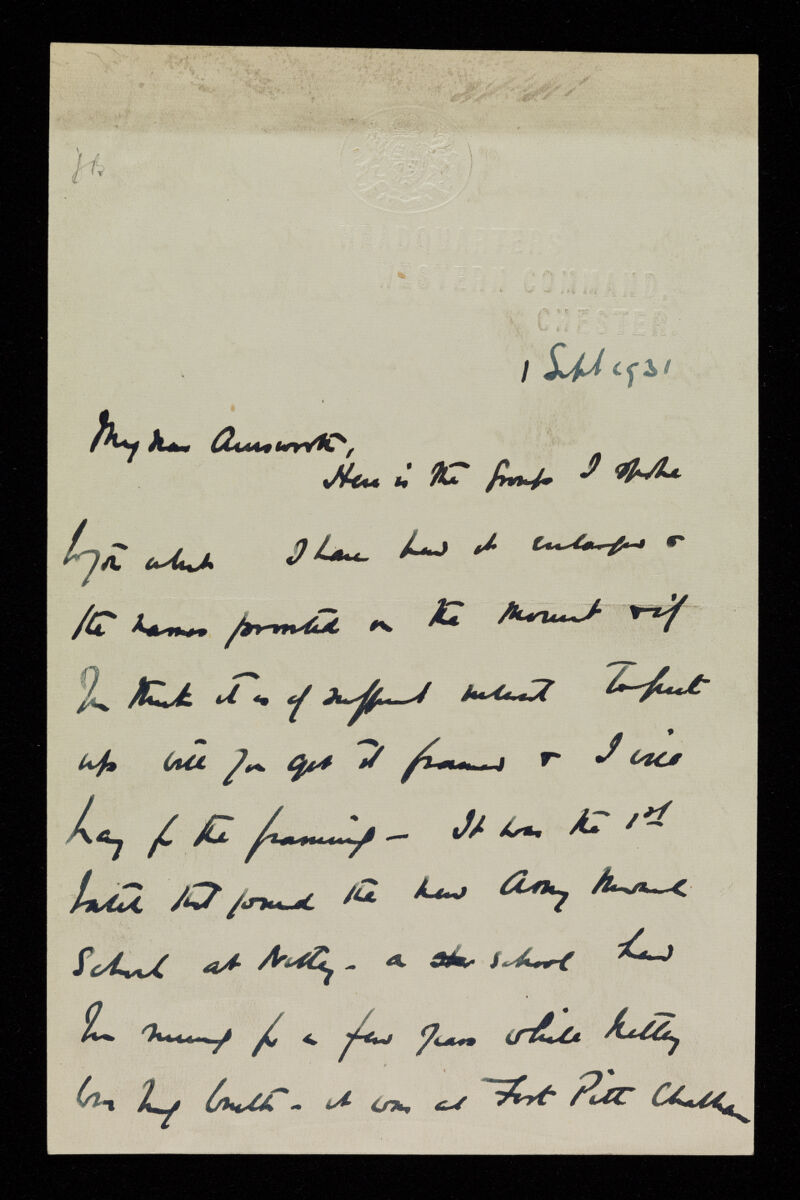 HEADQUARTERS
WESTERN COMMAND,
CHESTER.
1 Sept 1931
My dear Ainsworth,
Here is the group I spoke
to you about I have had it enlarged &
the names printed on the mount & if
you think it is of sufficient interest to put
up will you get it framed & I will
pay for the framing — It was the 1st
batch that joined the new Army Medical
School at Netley - a school had
been running for a few years while Netley
was being built - it was at Fort Pitt Chatham